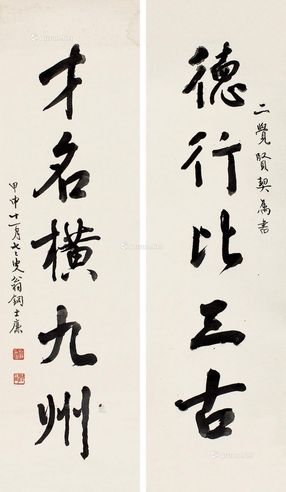 德行比三古
二覺賢契屬書
才名橫九州
甲申十一月七七叟翁銅士廉